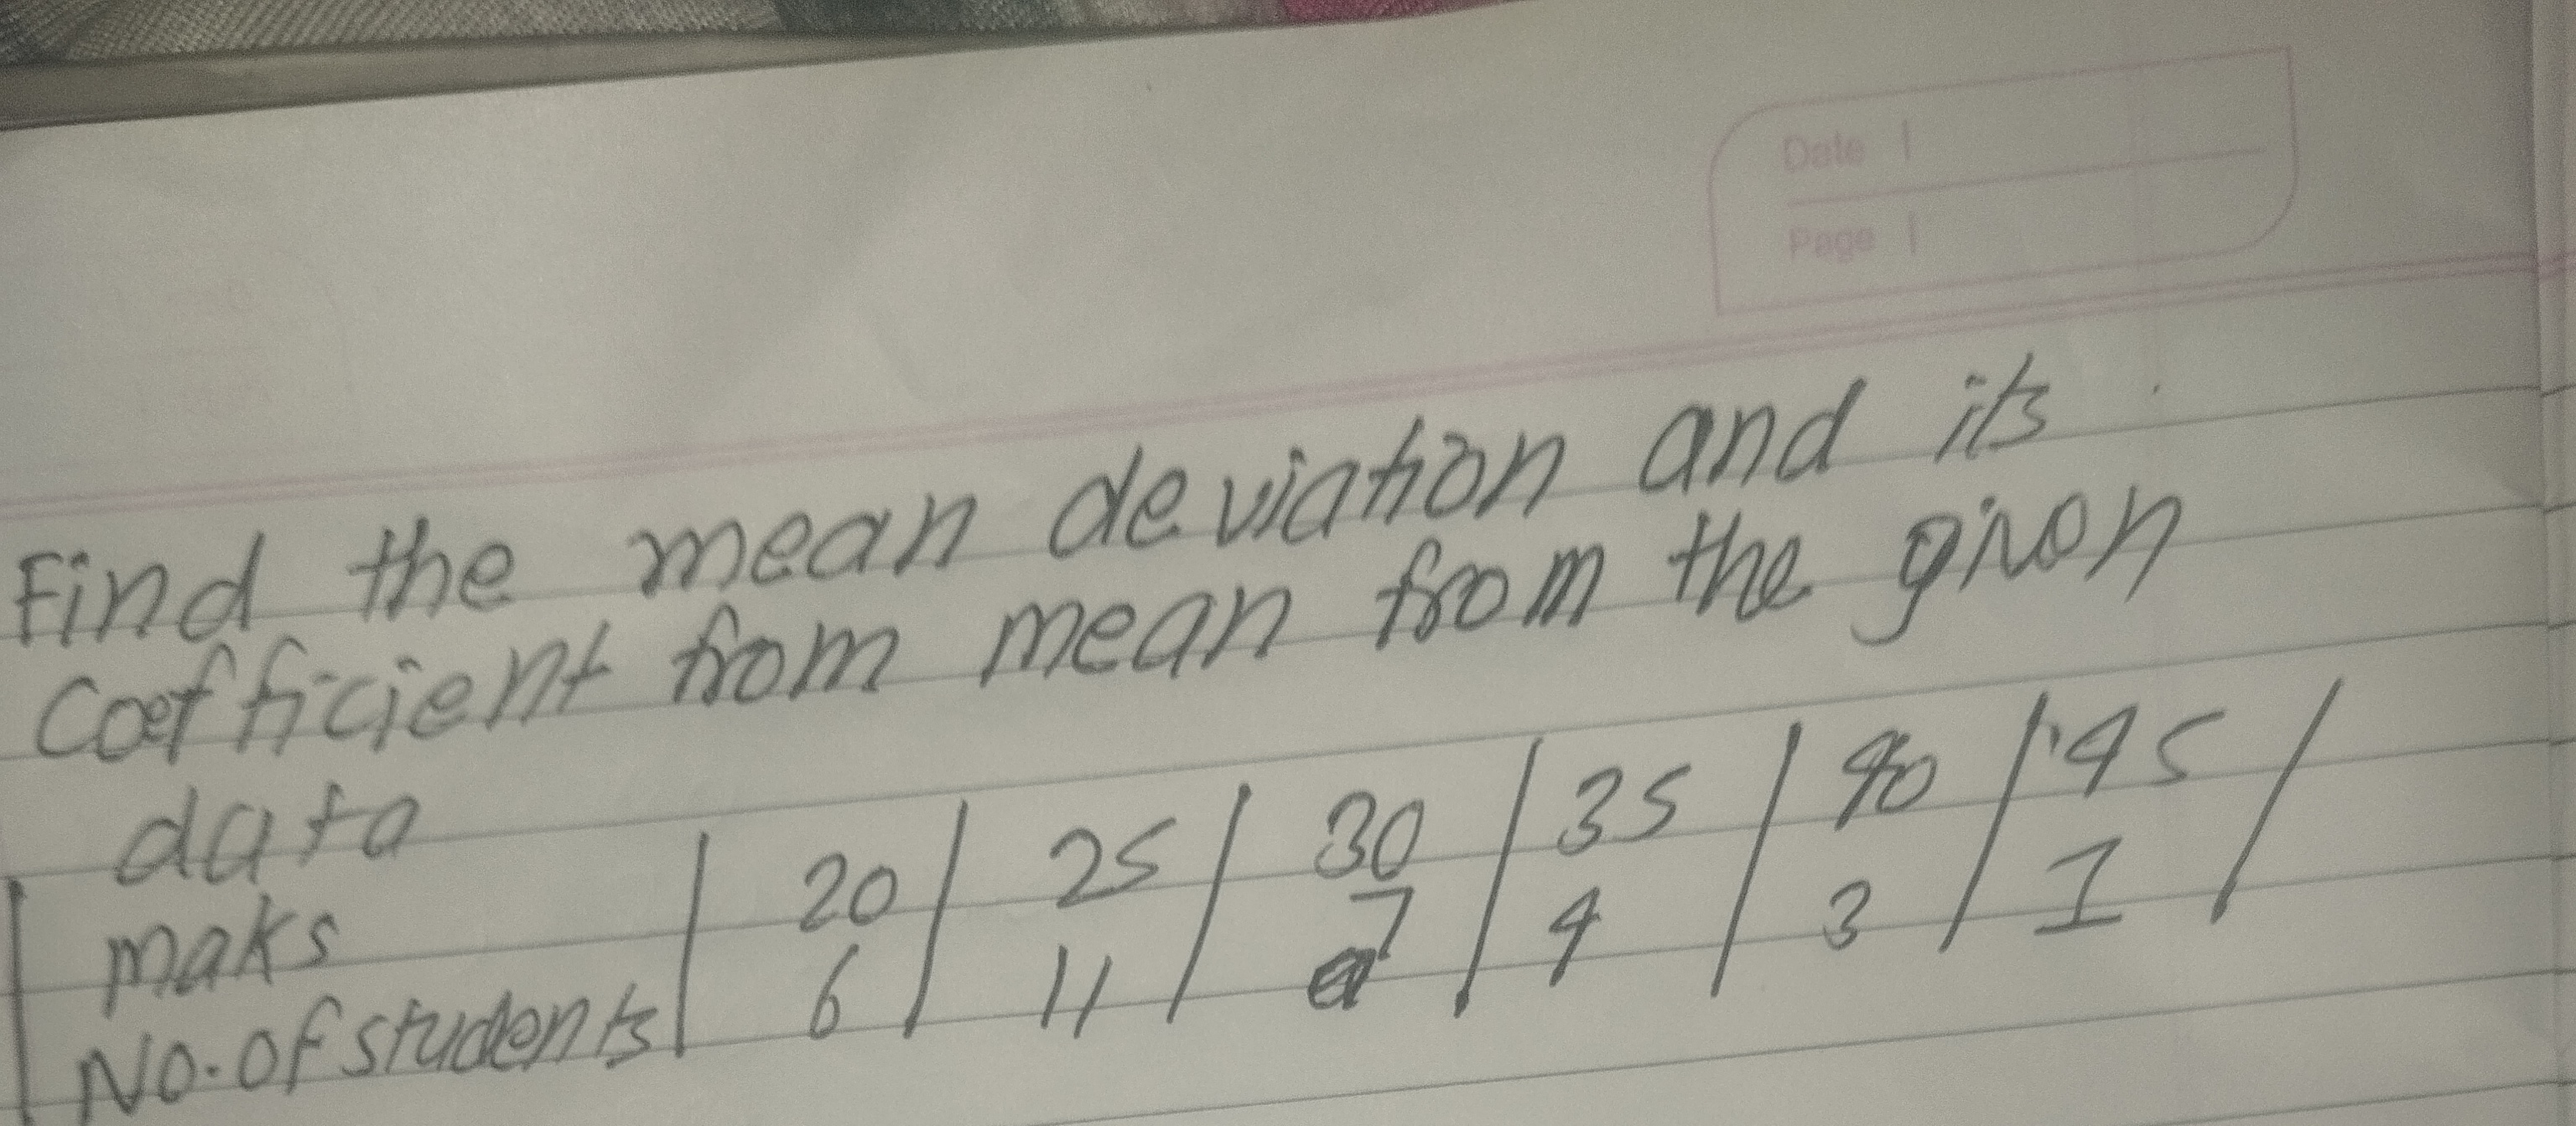 Date |
Page |
Find the mean deviation and its
Coefficient from mean from the given
data
maks | 20 | 25 | 30 | 35 | 40 | 45 |
No. of students | 6 | 11 | 7 | 4 | 3 | 1